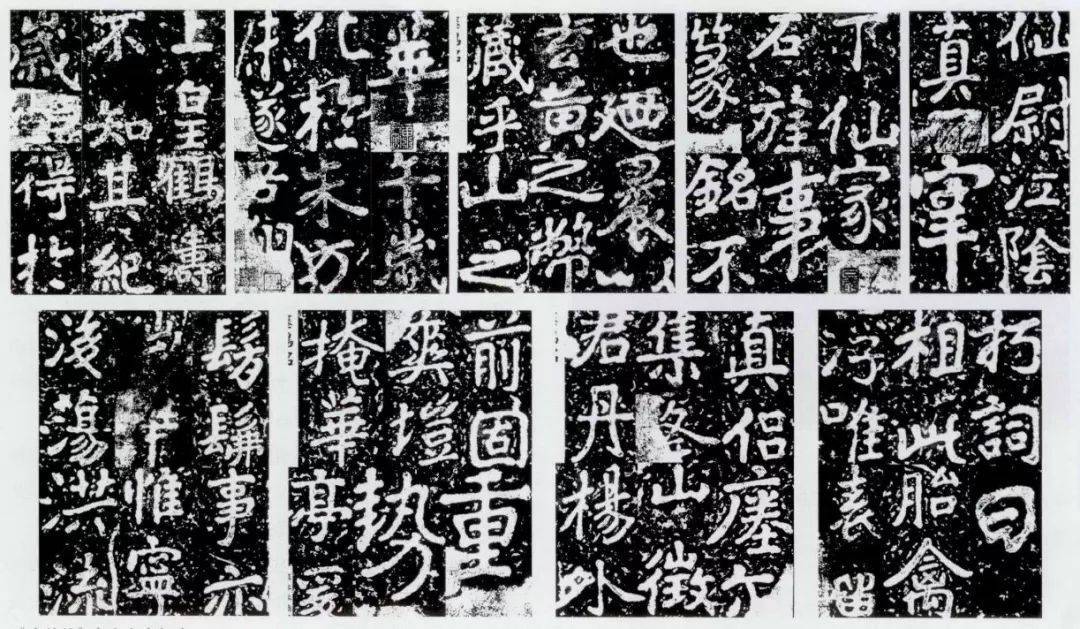 上皇鶴壽
不知其紀
歲得於
華午歲
化於朱方
未遂吾翔
也廼裹以
玄黄之幣
藏乎山之
下仙家
石旌事
篆銘不
仙尉江陰
真宰
髣髴事亦
惟寧
後蕩洪流
前固重
爽塏勢
掩華亭爰
真侣瘞尔
集山徵
君丹楊外
朽詞曰
相此胎禽
浮唯表留